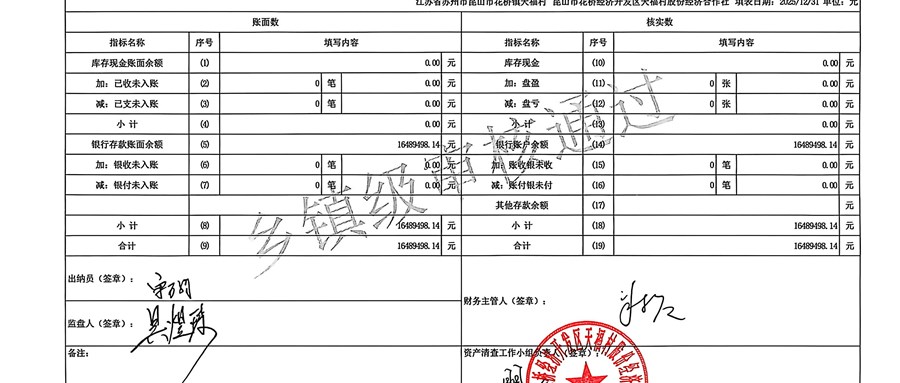 江苏省苏州市昆山市花桥镇天福村 昆山市花桥经济开发区天福村股份经济合作社 填表日期：2025/12/31 单位：元
账面数 核实数
指标名称 序号 填写内容 指标名称 序号 填写内容
库存现金账面余额 (1) 0.00 元 库存现金 (10) 0.00 元
加：已收未入账 (2) 0 笔 0.00 元 加：盘盈 (11) 0 张 0.00 元
减：已支未入账 (3) 0 笔 0.00 元 减：盘亏 (12) 0 张 0.00 元
小 计 (4) 0.00 元 小 计 (13) 0.00 元
银行存款账面余额 (5) 16489498.14 元 银行账户余额 (14) 16489498.14 元
加：银收未入账 (6) 0 笔 0.00 元 加：账收银未收 (15) 0 笔 0.00 元
减：银付未入账 (7) 0 笔 0.00 元 减：账付银未付 (16) 0 笔 0.00 元
其他存款余额 (17) 元
小 计 (8) 16489498.14 元 小 计 (18) 16489498.14 元
合计 (9) 16489498.14 元 合计 (19) 16489498.14 元
乡镇级审核通过
出纳员（签章）：
财务主管人（签章）：
监盘人（签章）：
备注：
资产清查工作小组负责人（签章）：
桥经济开发区天福村股份经济